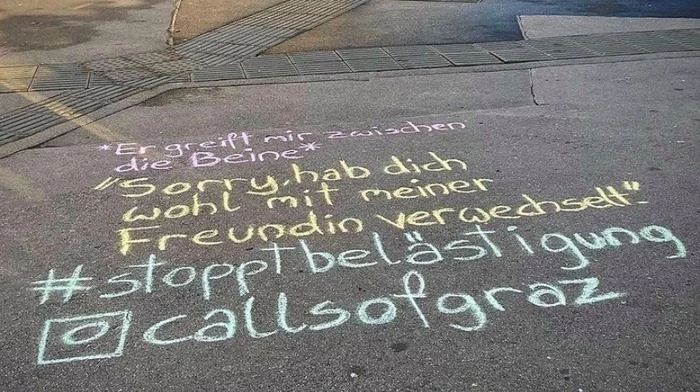 *Er greift mir zwischen
die Beine*
"Sorry, hab dich
wohl mit meiner
Freundin verwechselt".
#stopptbelästigung
callsofgraz